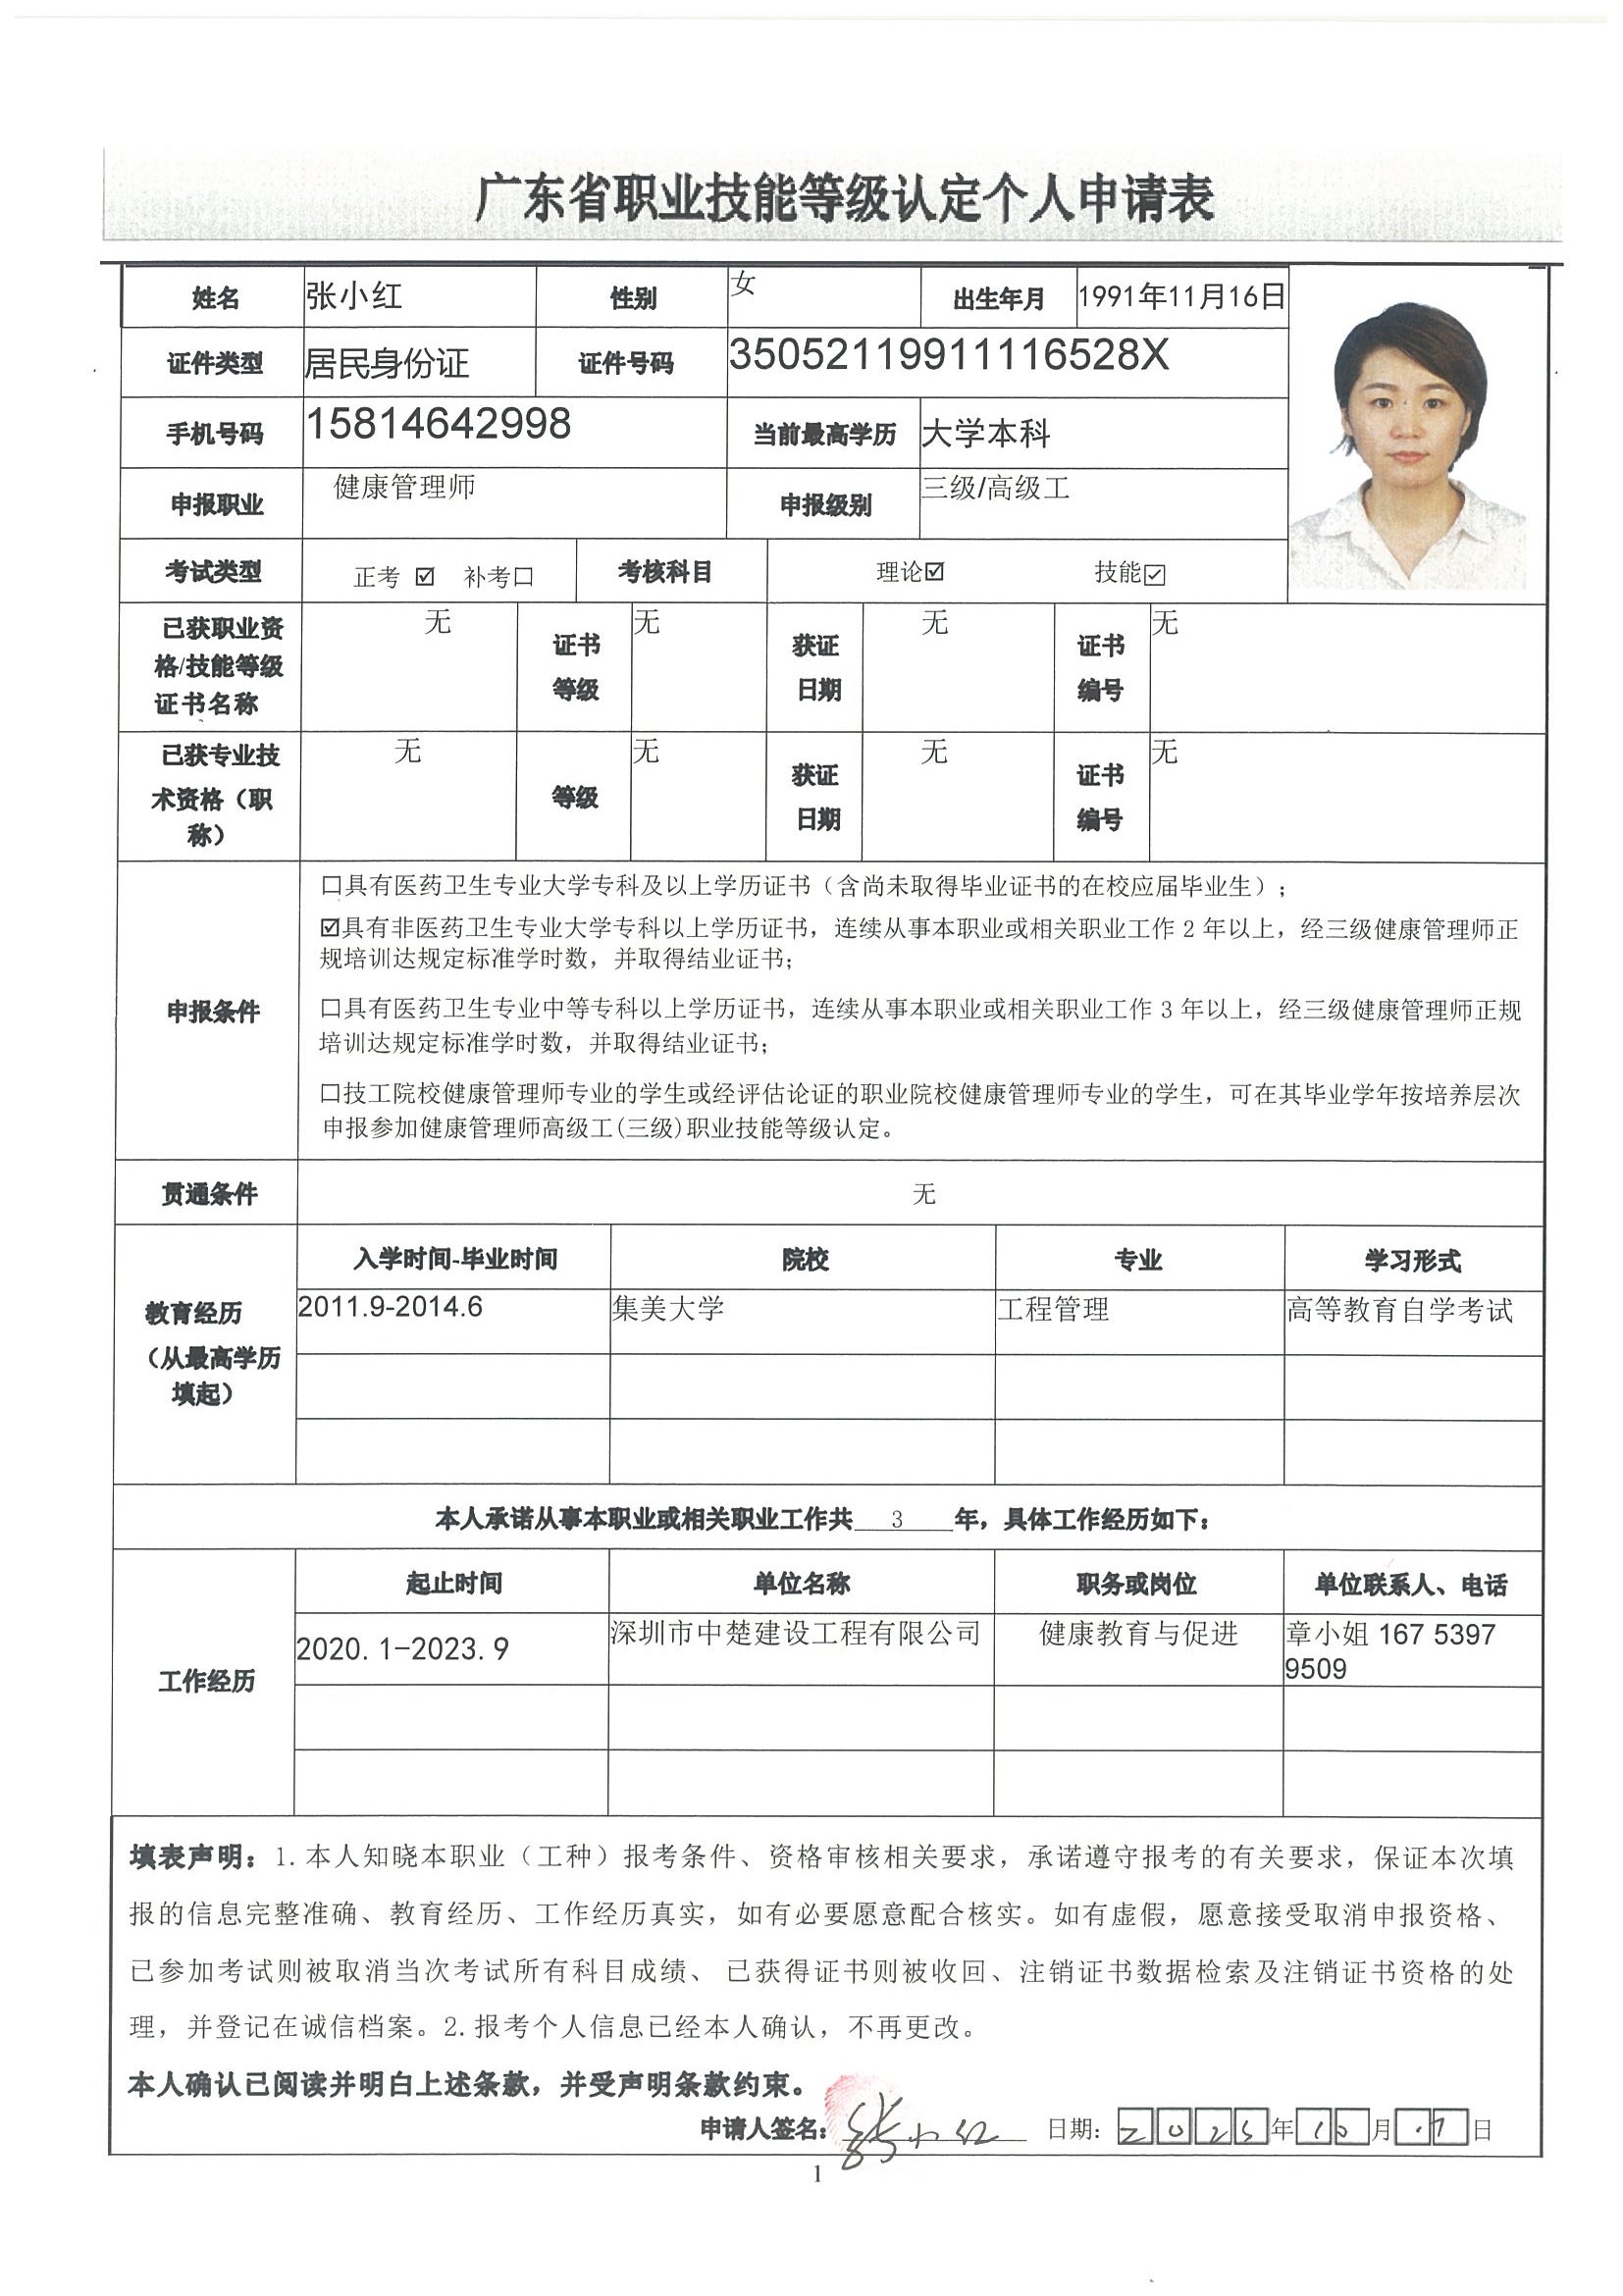 广东省职业技能等级认定个人申请表
姓名 张小红 性别 女 出生年月 1991年11月16日
证件类型 居民身份证 证件号码 35052119911116528X
手机号码 15814642998 当前最高学历 大学本科
申报职业 健康管理师 申报级别 三级/高级工
考试类型 正考 ☑ 补考☐ 考核科目 理论☑ 技能☑
已获职业资
格/技能等级
证书名称
无
证书
等级
无
获证
日期
无
证书
编号
无
已获专业技
术资格（职
称）
无
等级
无
获证
日期
无
证书
编号
无
申报条件
☐具有医药卫生专业大学专科及以上学历证书（含尚未取得毕业证书的在校应届毕业生）；
☑具有非医药卫生专业大学专科以上学历证书，连续从事本职业或相关职业工作 2 年以上，经三级健康管理师正
规培训达规定标准学时数，并取得结业证书；
☐具有医药卫生专业中等专科以上学历证书，连续从事本职业或相关职业工作 3 年以上，经三级健康管理师正规
培训达规定标准学时数，并取得结业证书；
☐技工院校健康管理师专业的学生或经评估论证的职业院校健康管理师专业的学生，可在其毕业学年按培养层次
申报参加健康管理师高级工(三级)职业技能等级认定。
贯通条件 无
教育经历
（从最高学历
填起）
入学时间-毕业时间 院校 专业 学习形式
2011.9-2014.6 集美大学 工程管理 高等教育自学考试
本人承诺从事本职业或相关职业工作共 3 年，具体工作经历如下：
工作经历
起止时间 单位名称 职务或岗位 单位联系人、电话
2020.1-2023.9 深圳市中楚建设工程有限公司 健康教育与促进 章小姐 167 5397
9509
填表声明：1.本人知晓本职业（工种）报考条件、资格审核相关要求，承诺遵守报考的有关要求，保证本次填
报的信息完整准确、教育经历、工作经历真实，如有必要愿意配合核实。如有虚假，愿意接受取消申报资格、
已参加考试则被取消当次考试所有科目成绩、 已获得证书则被收回、注销证书数据检索及注销证书资格的处
理，并登记在诚信档案。2.报考个人信息已经本人确认，不再更改。
本人确认已阅读并明白上述条款，并受声明条款约束。
申请人签名：张小红 日期：2025年10月17日
1